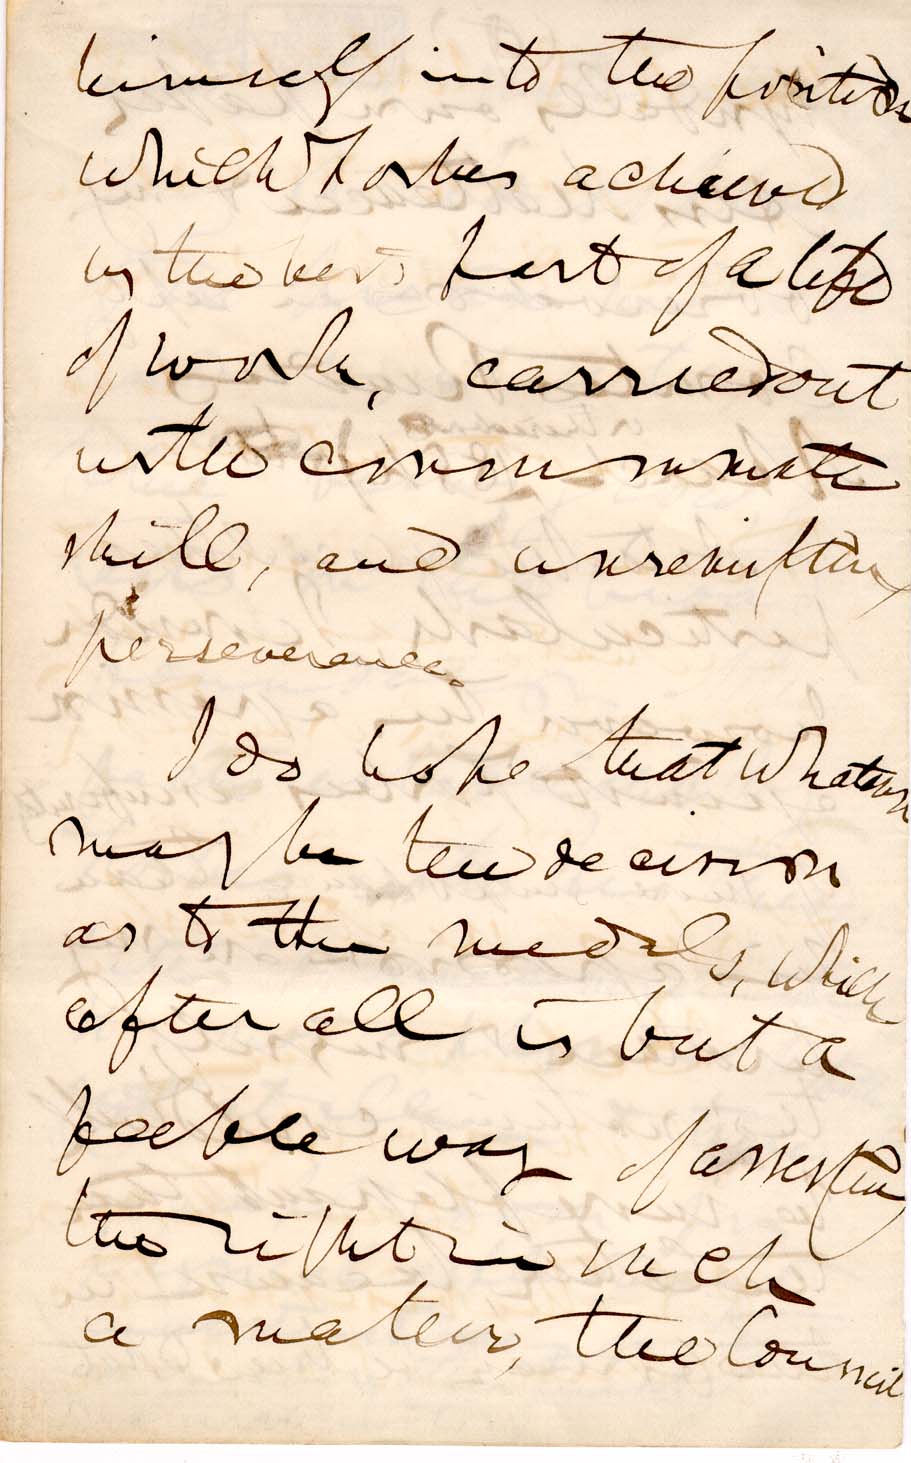 himself into the position
which Forbes achieved
by the best part of a life
of work, carried out
with consummate
skill, and unremitting
perseverance.
I do hope that whatever
may be the decision
as to the medals, which
after all is but a
feeble way of asserting
the right in such
a matter, the Council